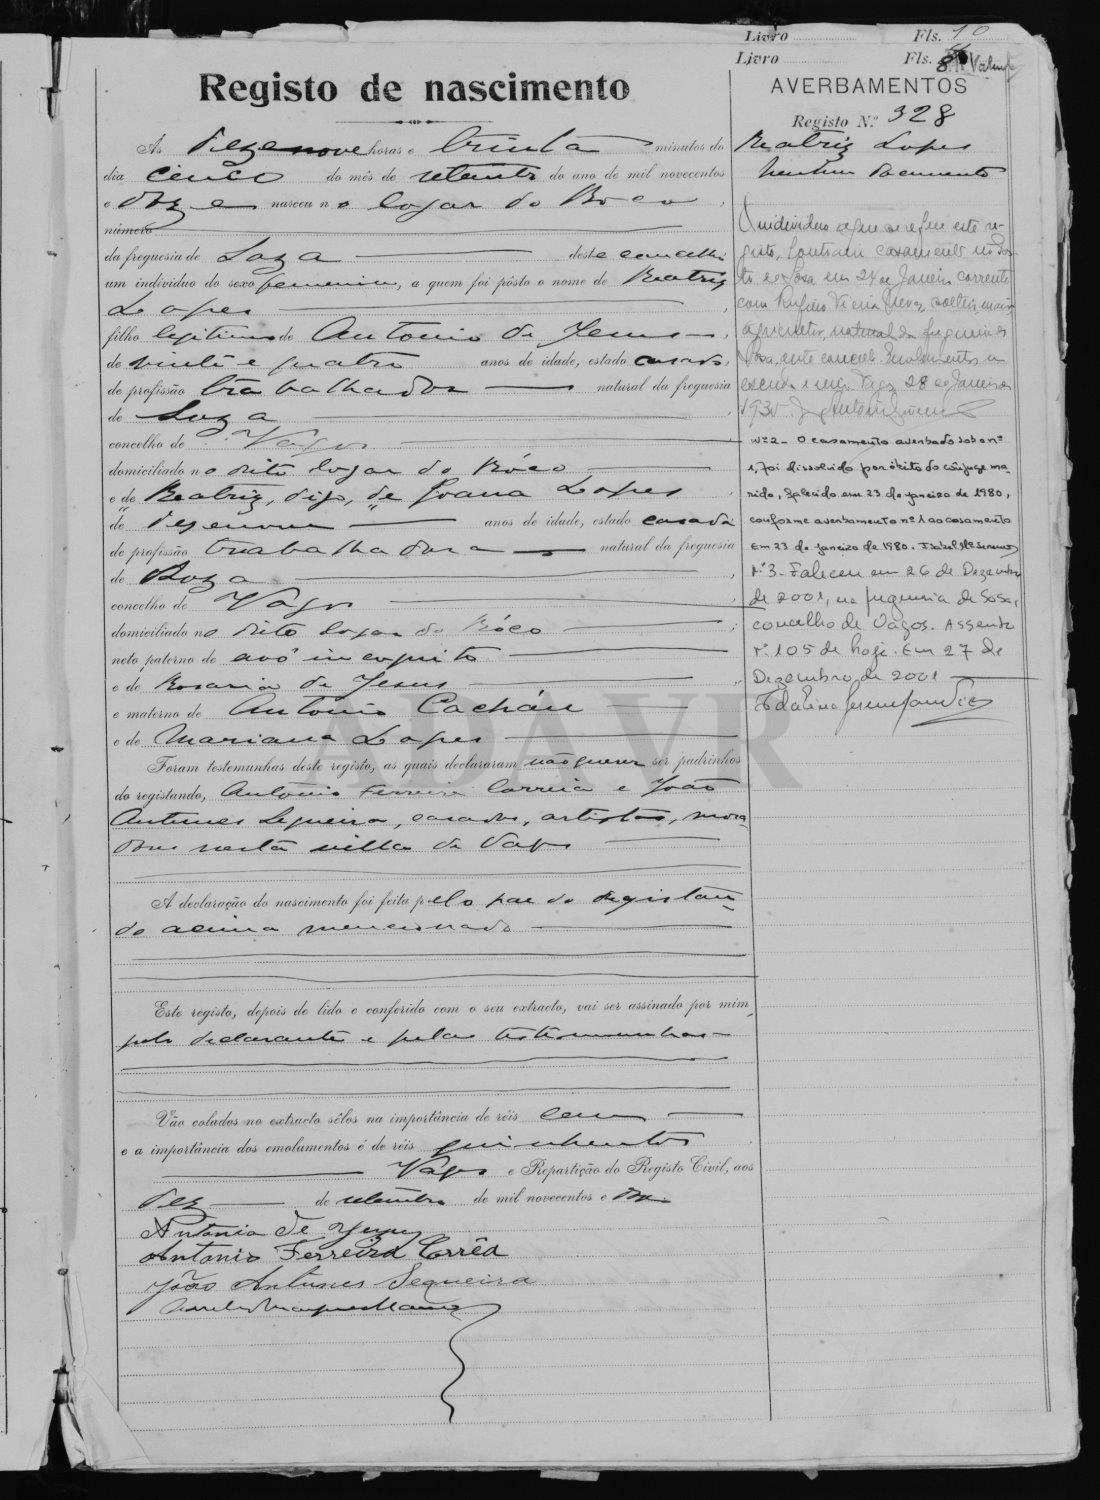 Livro Fls. 10
Livro Fls.
Registo de nascimento
AVERBAMENTOS
Registo N.º 328
Beatriz Lopes
Nenhum documento
Ás dezenove horas e trinta minutos do
dia cinco do mês de setembro do ano de mil novecentos
e doze nasceu no logar do Bôco,
número
da freguesia de Soza deste concelho
um individuo do sexo femenino, a quem foi pôsto o nome de Beatriz
Lopes
filho legitimo de Antonio de Jesus,
de vinte e quatro anos de idade, estado casado,
de profissão trabalhador natural da freguesia
de Soza,
concelho de Vagos
domiciliado no dito logar do Bôco
e de Beatriz, digo, de Joana Lopes,
de dezenove anos de idade, estado casada
de profissão trabalhadora natural da freguesia
de Soza,
concelho de Vagos
domiciliado no dito logar do Bôco;
neto paterno de avô incognito
e de Rosaria de Jesus,
e materno de Antonio Cachão
e de Mariana Lopes
Foram testemunhas deste registo, as quais declararam não querer ser padrinhos
do registando, Antonio Ferreira Correia e João
Antunes Sequeira, casados, artistas, mora-
dores nesta villa de Vagos
A declaração do nascimento foi feita pelo pae do registan-
do acima mencionado
Este registo, depois de lido e conferido com o seu extracto, vai ser assinado por mim,
pelo declarante e pelas testemunhas
Vão colados no extracto sêlos na importância de réis cem
e a importância dos emolumentos é de réis quinhentos
Vagos e Repartição do Registo Civil, aos
dez de setembro de mil novecentos e doze
Antonio de Jesus
Antonio Ferreira Corrêa
João Antunes Sequeira
O individuo a que se refere este re-
gisto, contraiu casamento no Pos-
to de Sosa em 24 de Janeiro corrente
com Neves, solteiro, maior,
agricultor, natural da freguesia de
Sosa, deste concelho. Emolumentos um
escudo e Vagos, 28 de Janeiro
193
Nº 2 - O casamento averbado sob o nº
1, foi dissolvido por óbito do cônjuge ma-
rido, falecido em 23 de janeiro de 1980,
conforme averbamento nº 1 ao casamento
Em 23 de janeiro de 1980.
Nº 3 - Faleceu em 26 de Dezembro
de 2001, na freguesia de Sosa,
concelho de Vagos. Assento
Nº 105 de hoje. Em 27 de
Dezembro de 2001
ADAVR